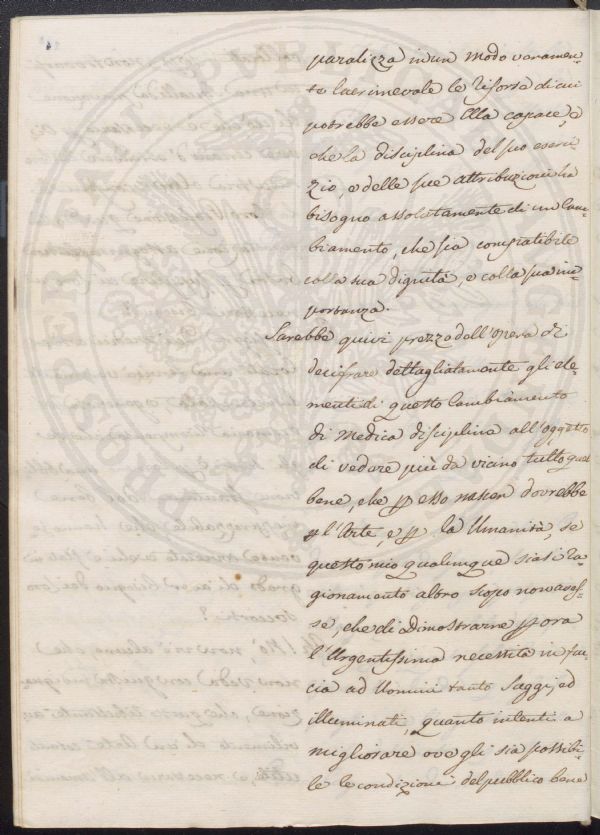 paralizza in un modo veramen-
te lacrimevole le risorse di cui
potrebbe essere Ella capace, e
che la disciplina del suo eserci-
zio, e delle sue attribuzioni ha
bisogno assolutamente di un Cam-
biamento, che sia compatibile
colla sua dignità, e colla sua im-
portanza.
Sarebbe quivi prezzo dell'opera di
decifrare dettagliatamente gli ele-
menti di questo Cambiamento
di Medica disciplina all'oggetto
di vedere più da vicino tutto quel
bene, che p esso nascer dovrebbe
p l'Arte, e p la Umanità, se
questo mio qualunque siasi ra-
gionamento altro scopo non aves-
se, che di Dimostrarne p ora
l'Urgentissima necessità in fac-
cia ad Uomini tanto Saggi, ed
illuminati, quanto intenti a
migliorare ove gli sia possibi-
le le condizioni del pubblico bene